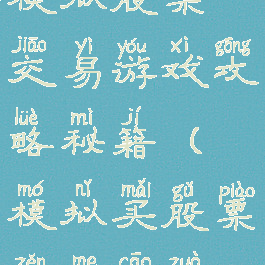 模拟股票
jiāo yì yóu xì gōng
交易游戏攻
lüè mì jí
略秘籍（
mó nǐ mǎi gǔ piào
模拟买股票
zěn me cāo zuò